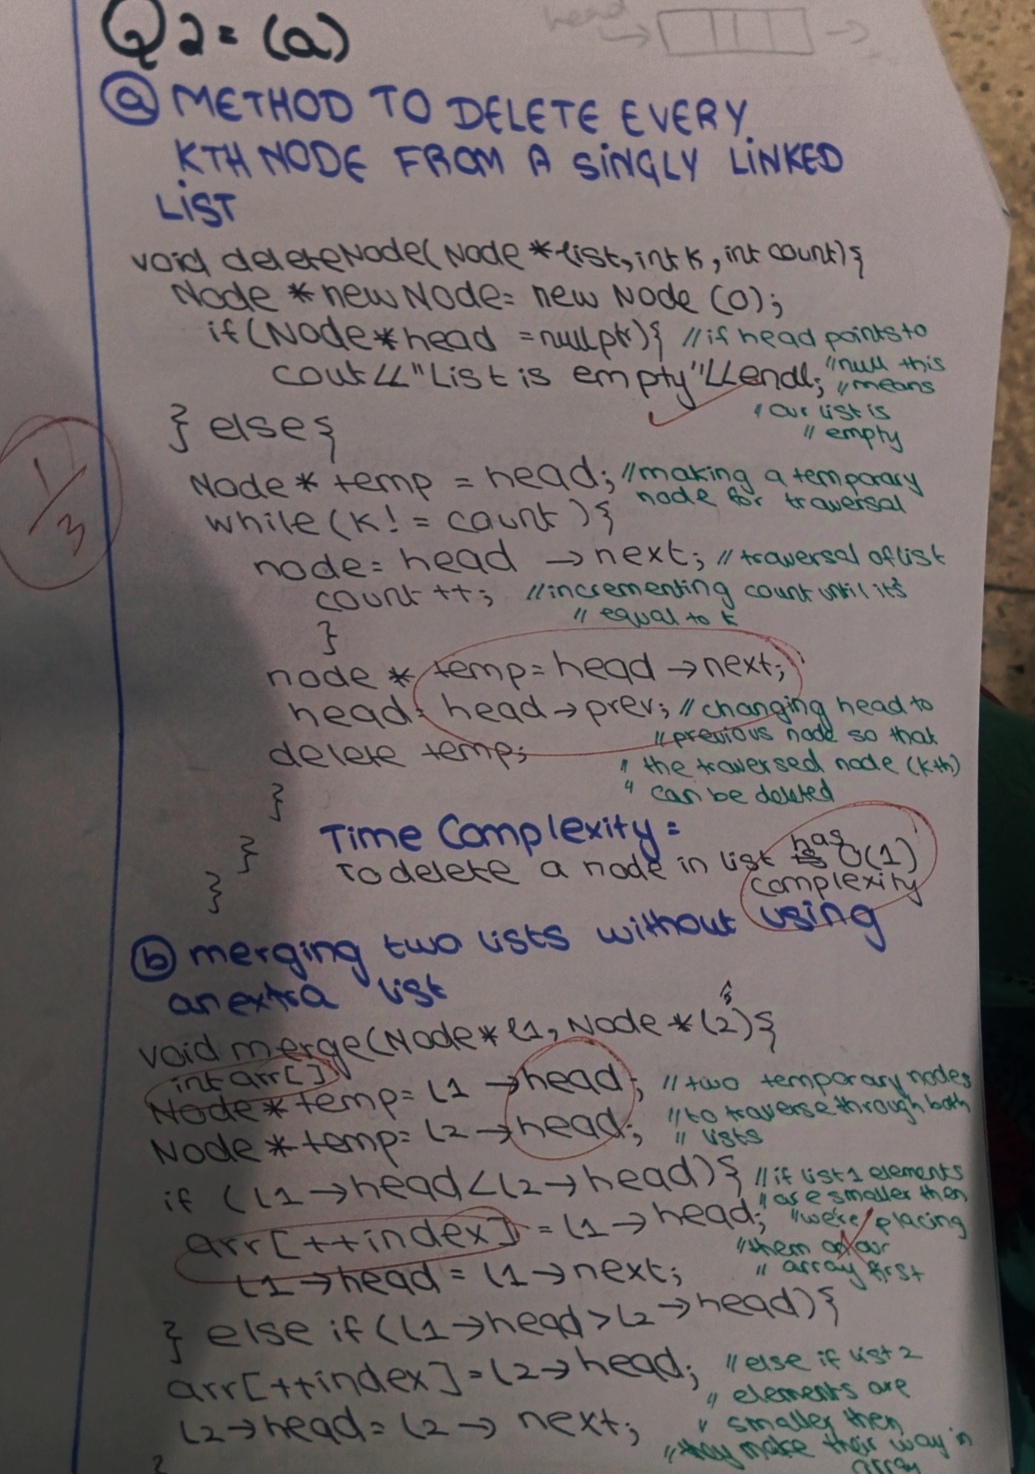 Q2=(a)
head
(a) METHOD TO DELETE EVERY
KTH NODE FROM A SINGLY LINKED
LIST
void deleteNode(Node *list, int k, int count){
Node *newNode= new Node (0);
if(Node*head =nullptr){ //if head points to
cout<<"List is empty"<<endl; //null this
//means
// our list is
// empty
} else{
Node* temp = head; //making a temporary
node for traversal
while(k! = count){
node= head →next; // traversal of list
count ++; //incrementing count until its
// equal to k
}
node * temp= head →next;
head= head→prev; // changing head to
// previous node so that
delete temp;
// the traversed node (kth)
// can be deleted
}
1/3
Time Complexity=
}
To delete a node in list has O(1)
complexity
}
(b) merging two lists without using
an extra list
void merge(Node* l1, Node *l2){
int arr[]
Node* temp= L1 →head; // two temporary nodes
//to traverse through both
Node*temp= L2→head; // lists
if (L1→head<L2→head){ //if list1 elements
// are smaller then
arr[++index] = L1→head; //we're placing
//them our
// array first
L1→head = L1→next;
} else if(L1→head>L2→head){
arr[++index]=L2→head; //else if list 2
// elements are
L2→head= L2→ next; // smaller then
//they make their way in
array
}